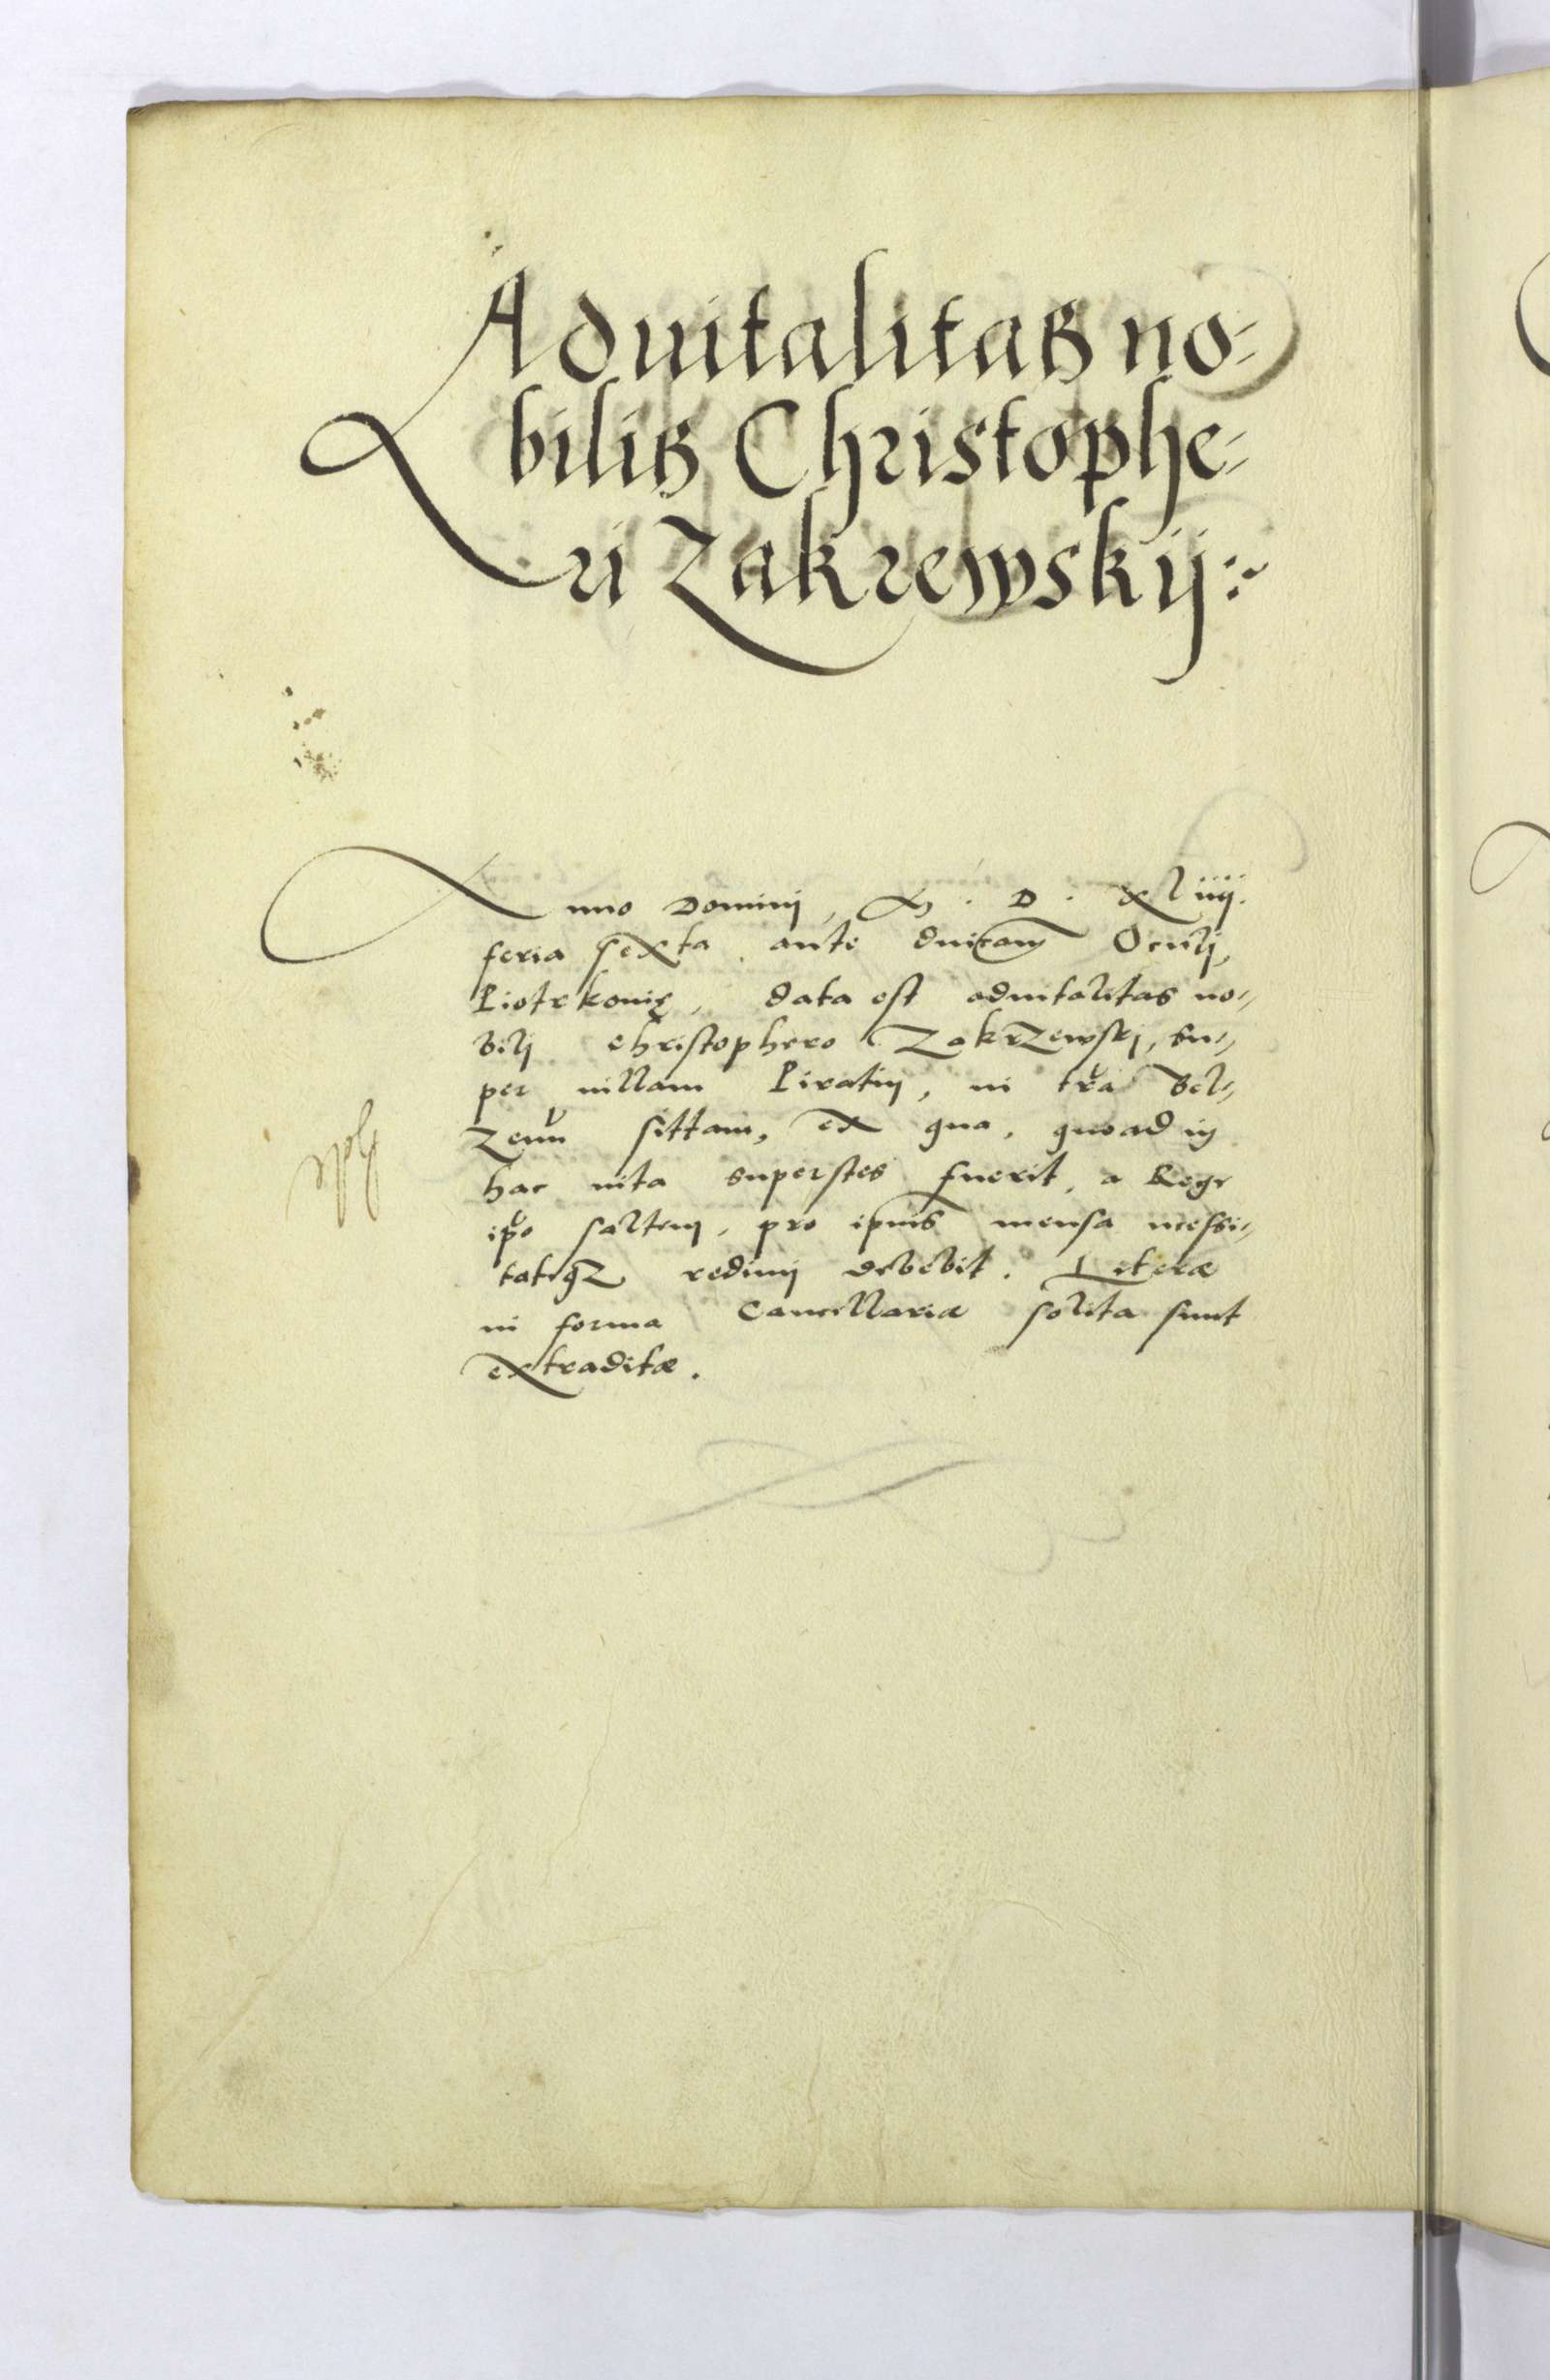 Aduitalitas no-
bilis Christophe-
ri Zakrewskij:
Anno Dominj, M. D. xliiij.
feria sexta ante dnicam Oculj,
Piotrkouię, data est aduitalitas no-
bilj Christophero Zakrzewskj, su-
per uillam Piratin, in tra Bel-
zeun sittam, ex qua, quoad in
hac uita superstes fuerit, a Rege
ipo saltem, pro ipius mensa necessi-
tateqz redimj debebit. Literæ
in forma Cancellariæ solita sunt
extraditæ.